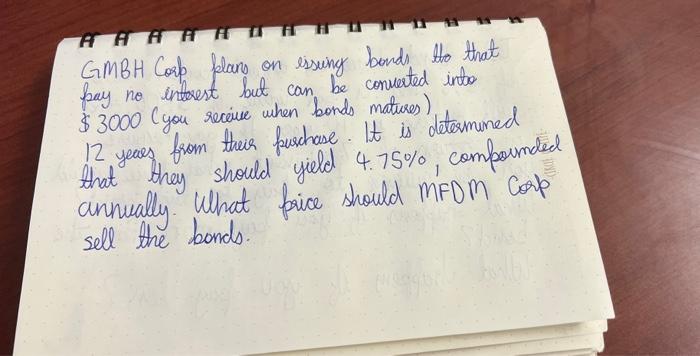 GMBH Corp plans on issuing bonds that
pay no interest but can be converted into
$3000 (you receive when bonds matures)
12 years from their purchase. It is determined
that they should yield 4.75%, compounded
annually. What price should MFDM Corp
sell the bonds.